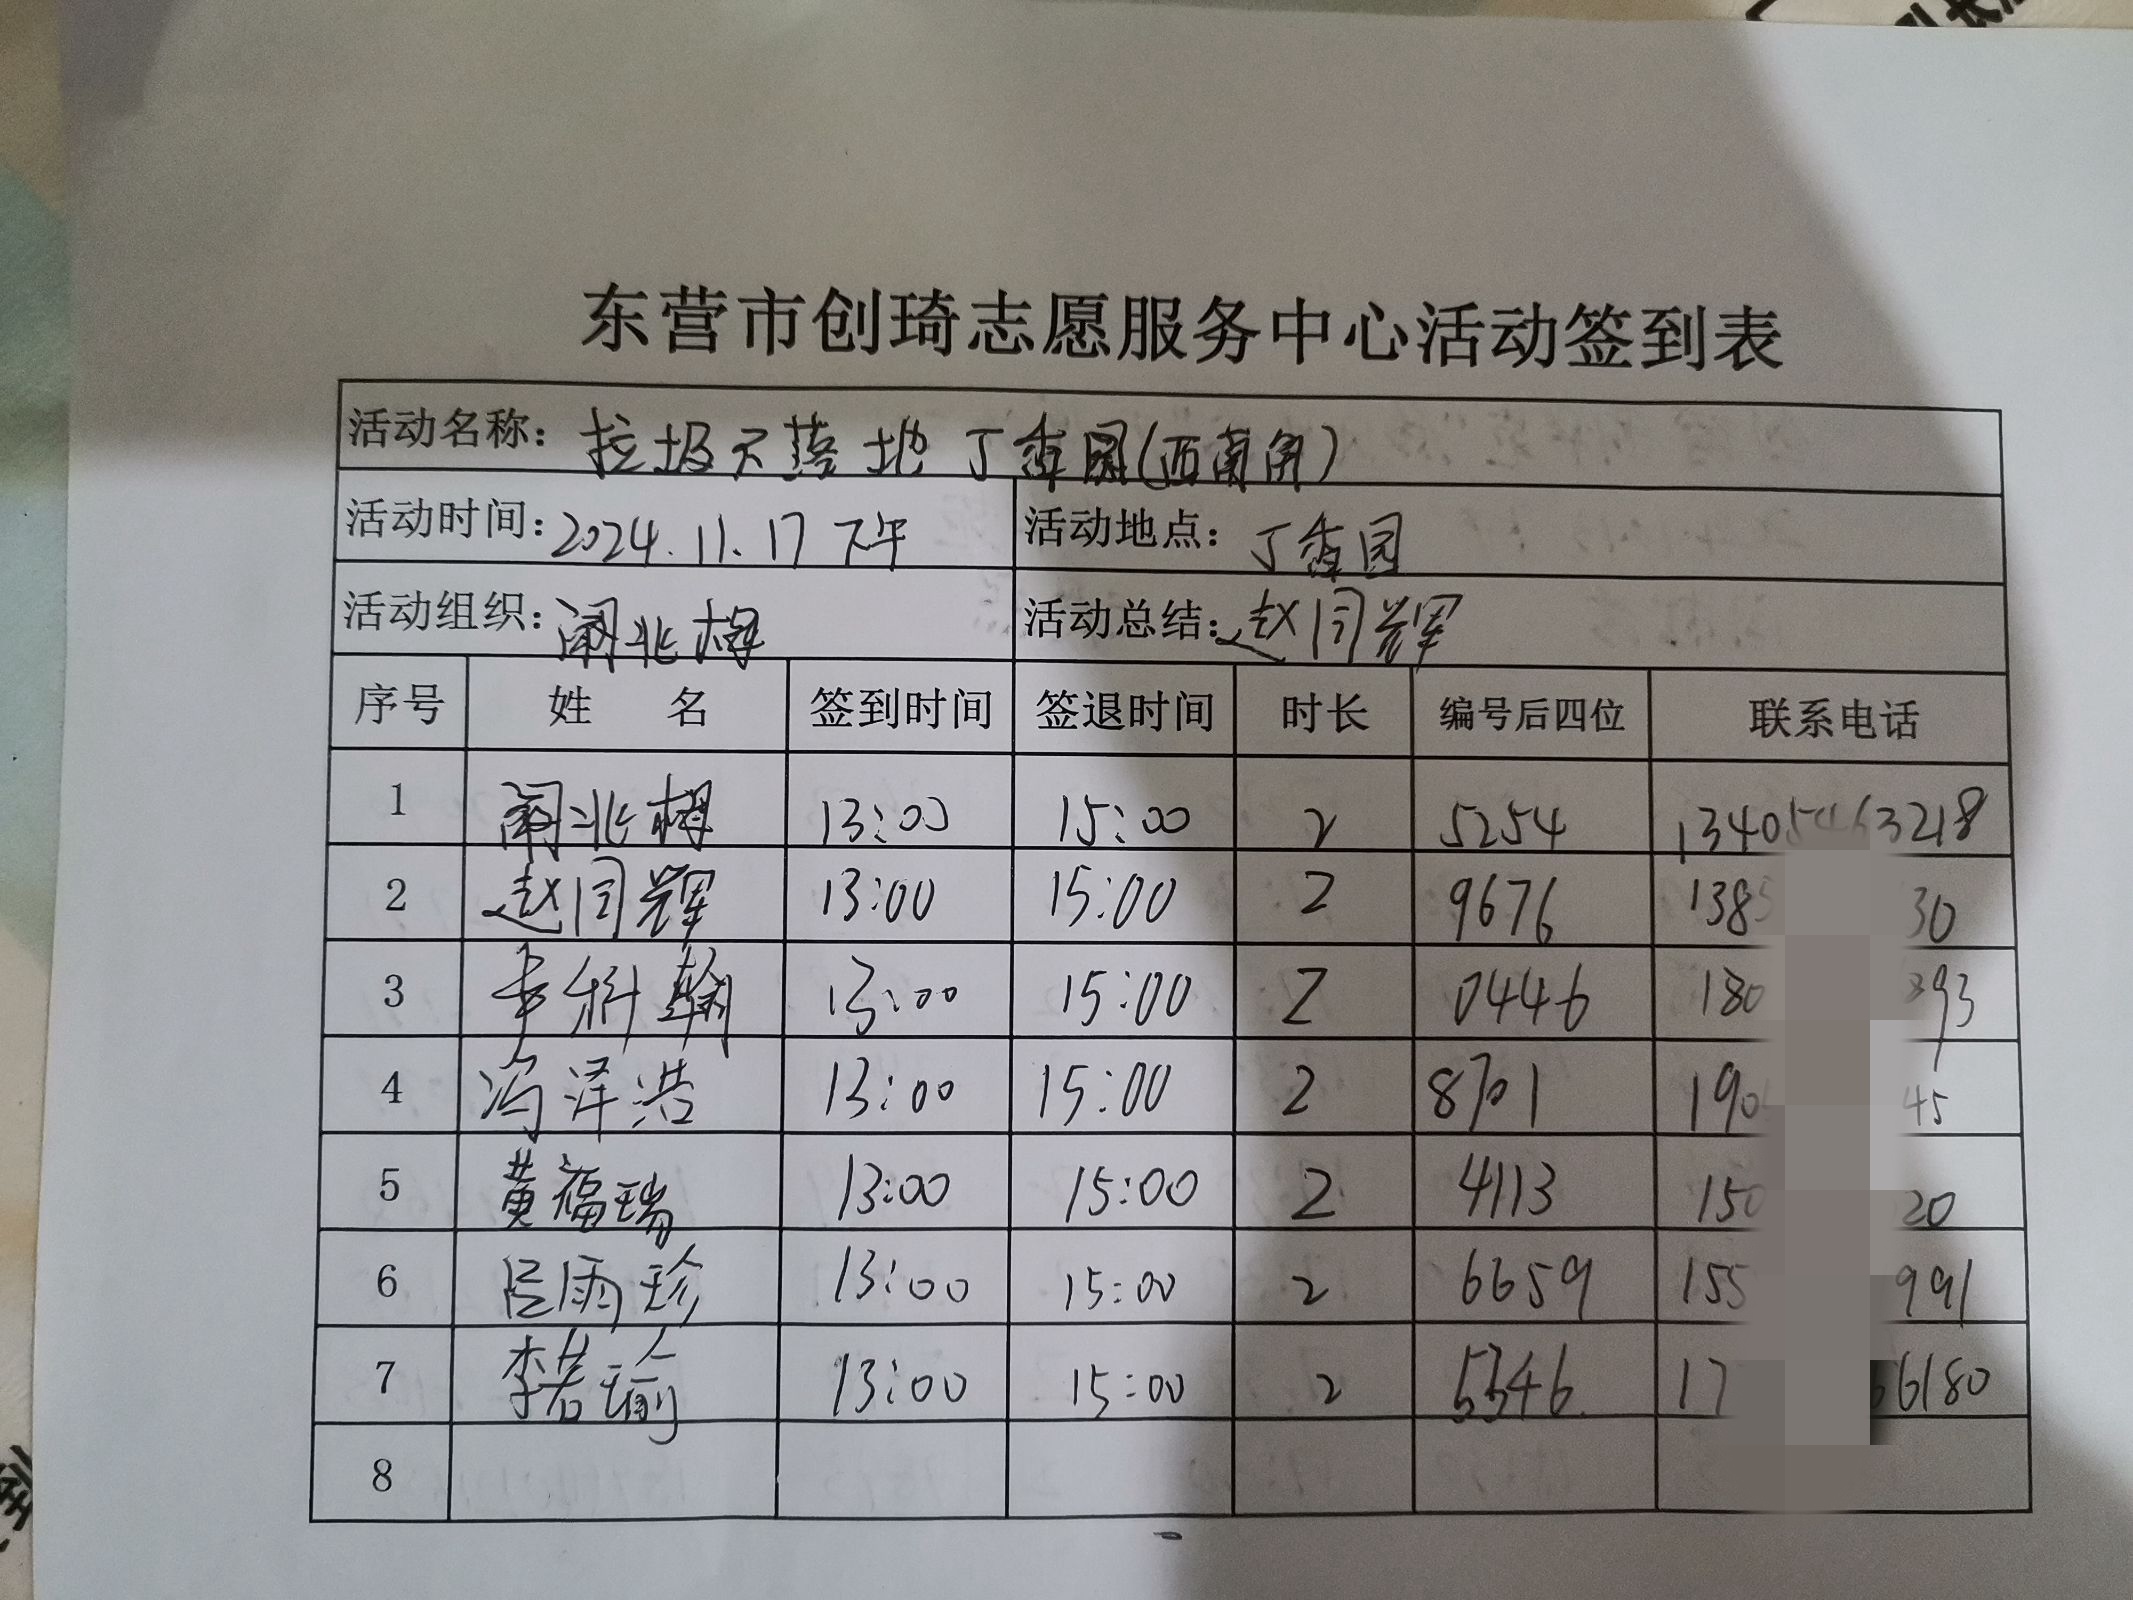 东营市创琦志愿服务中心活动签到表
活动名称: 拉圾不落地 丁香园(西南角)
活动时间: 2024.11.17 下午 活动地点: 丁香园
活动组织: 阚兆梅 活动总结: 赵同辉
序号 姓 名 签到时间 签退时间 时长 编号后四位 联系电话
1 阚兆梅 13:00 15:00 2 5254 13405463218
2 赵同辉 13:00 15:00 2 9676 1385 30
3 13:00 15:00 2 0446 180 393
4 冯泽浩 13:00 15:00 2 8701 190 45
5 黄福瑞 13:00 15:00 2 4113 150 20
6 吕雨珍 13:00 15:00 2 6659 155 991
7 李若瑜 13:00 15:00 2 5346 17 66180
8